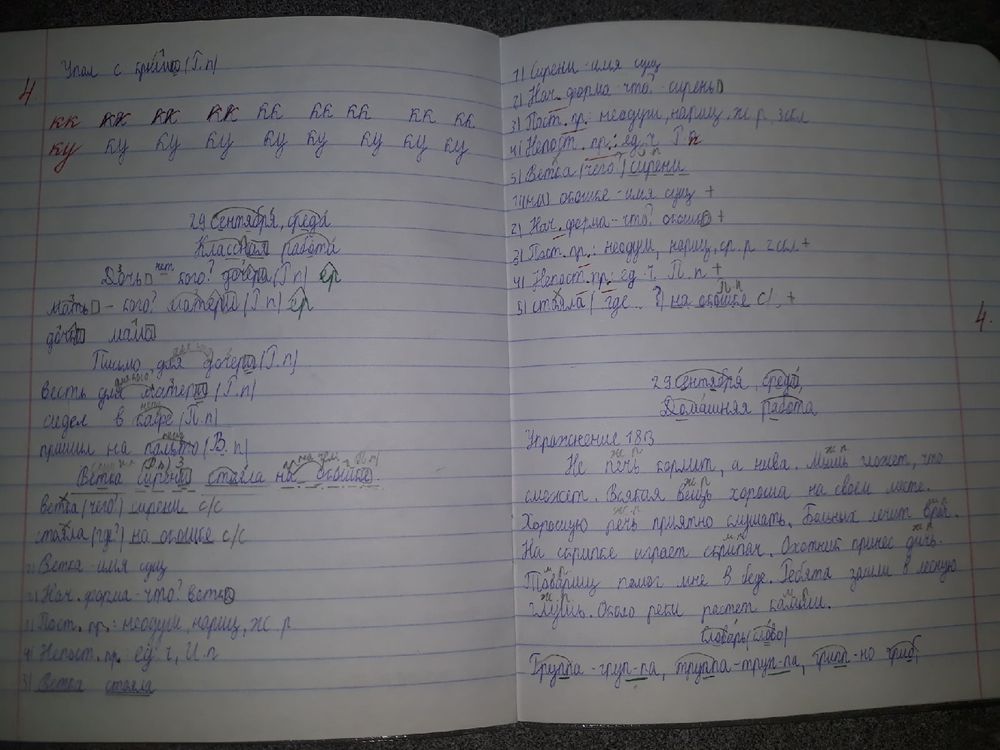 Упал с крыльца (Р.п)
4
кк кк кк кк кк кк кк кк кк
ку ку ку ку ку ку ку ку ку
29 сентября, среда
Классная работа
Дочь нет кого? дочери (Р.п) ер
мать - кого? матери (Р.п) ер
дочь мама
Письмо для дочери (Р.п)
весть для матери (Р.п)
сидел в кафе (П.п)
пришил на пальто (В.п)
Ветка сирени стояла на окошке.
ветка (чего?) сирени с/с
стояла (где?) на окошке с/с
Ветка - имя сущ
2) Нач. форма - что? ветка
3) Пост. пр.: неодуш, нариц, ж р
4) Непост. пр: ед. ч, И. п
5) Ветка стояла
1) Сирени - имя сущ
2) Нач. форма - что? сирень
3) Пост. пр.: неодуш, нариц. ж р, 3 скл
4) Непост. пр.: ед. ч. Р. п
5) Ветка (чего?) сирени
1) (на) окошке - имя сущ +
2) Нач. форма - что? окошко +
3) Пост. пр.: неодуш, нариц, ср. р 2 скл +
4) Непост. пр: ед. ч. П. п +
5) стояла (где ...?) на окошке с/. +
4.
29 сентября, среда,
Домашняя работа
Упражнение 18В
Не печь кормит, а нива. Мышь гложет, что
сможет. Всякая вещь хороша на своем месте.
Хорошую речь приятно слушать. Больных лечит врач.
На скрипке играет скрипач. Охотник принес дичь.
Товарищ помог мне в беде. Ребята зашли в лесную
глушь. Около реки растет камыш.
Словарь (слово)
Группа - груп-па, труппа - труп-па, грипп - но гриб.